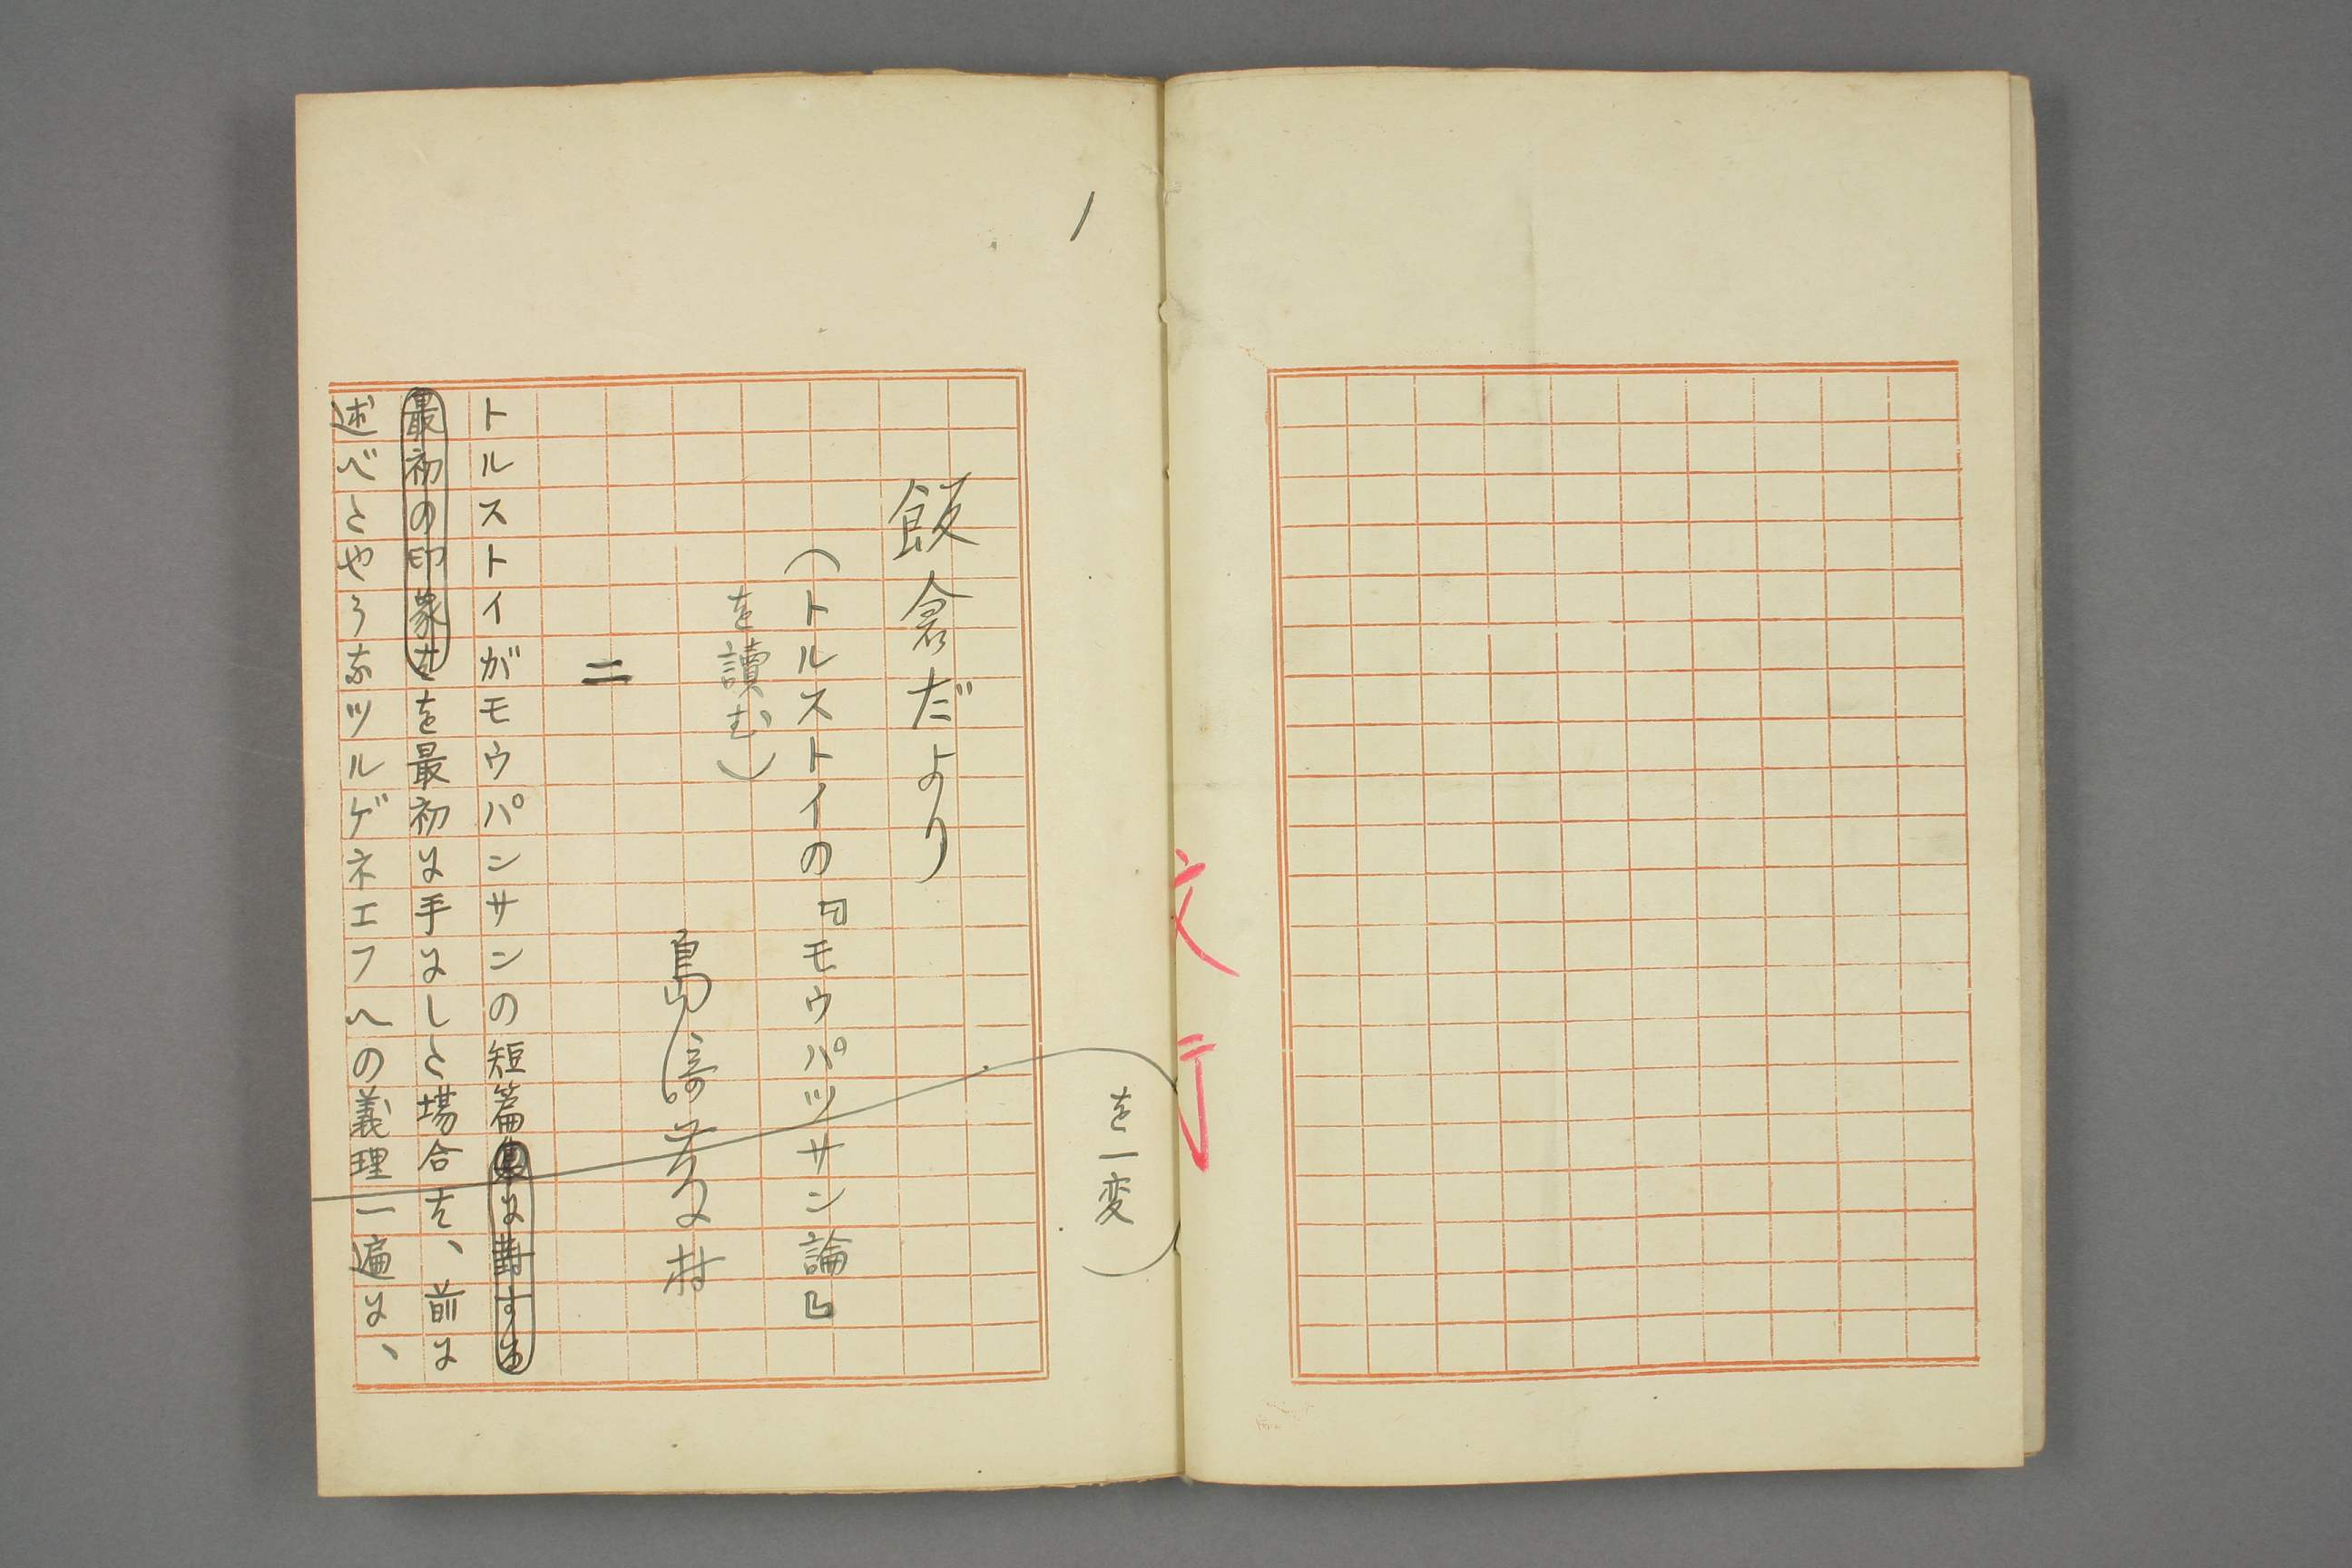 1
を一変
飯倉だより
（トルストイの『モウパツサン論』
を讀む）
島崎藤村
二
トルストイがモウパンサンの短篇集に對する
最初の印象はを最初に手にした場合は、前に
述べたやうなツルゲネエフへの義理一遍に、